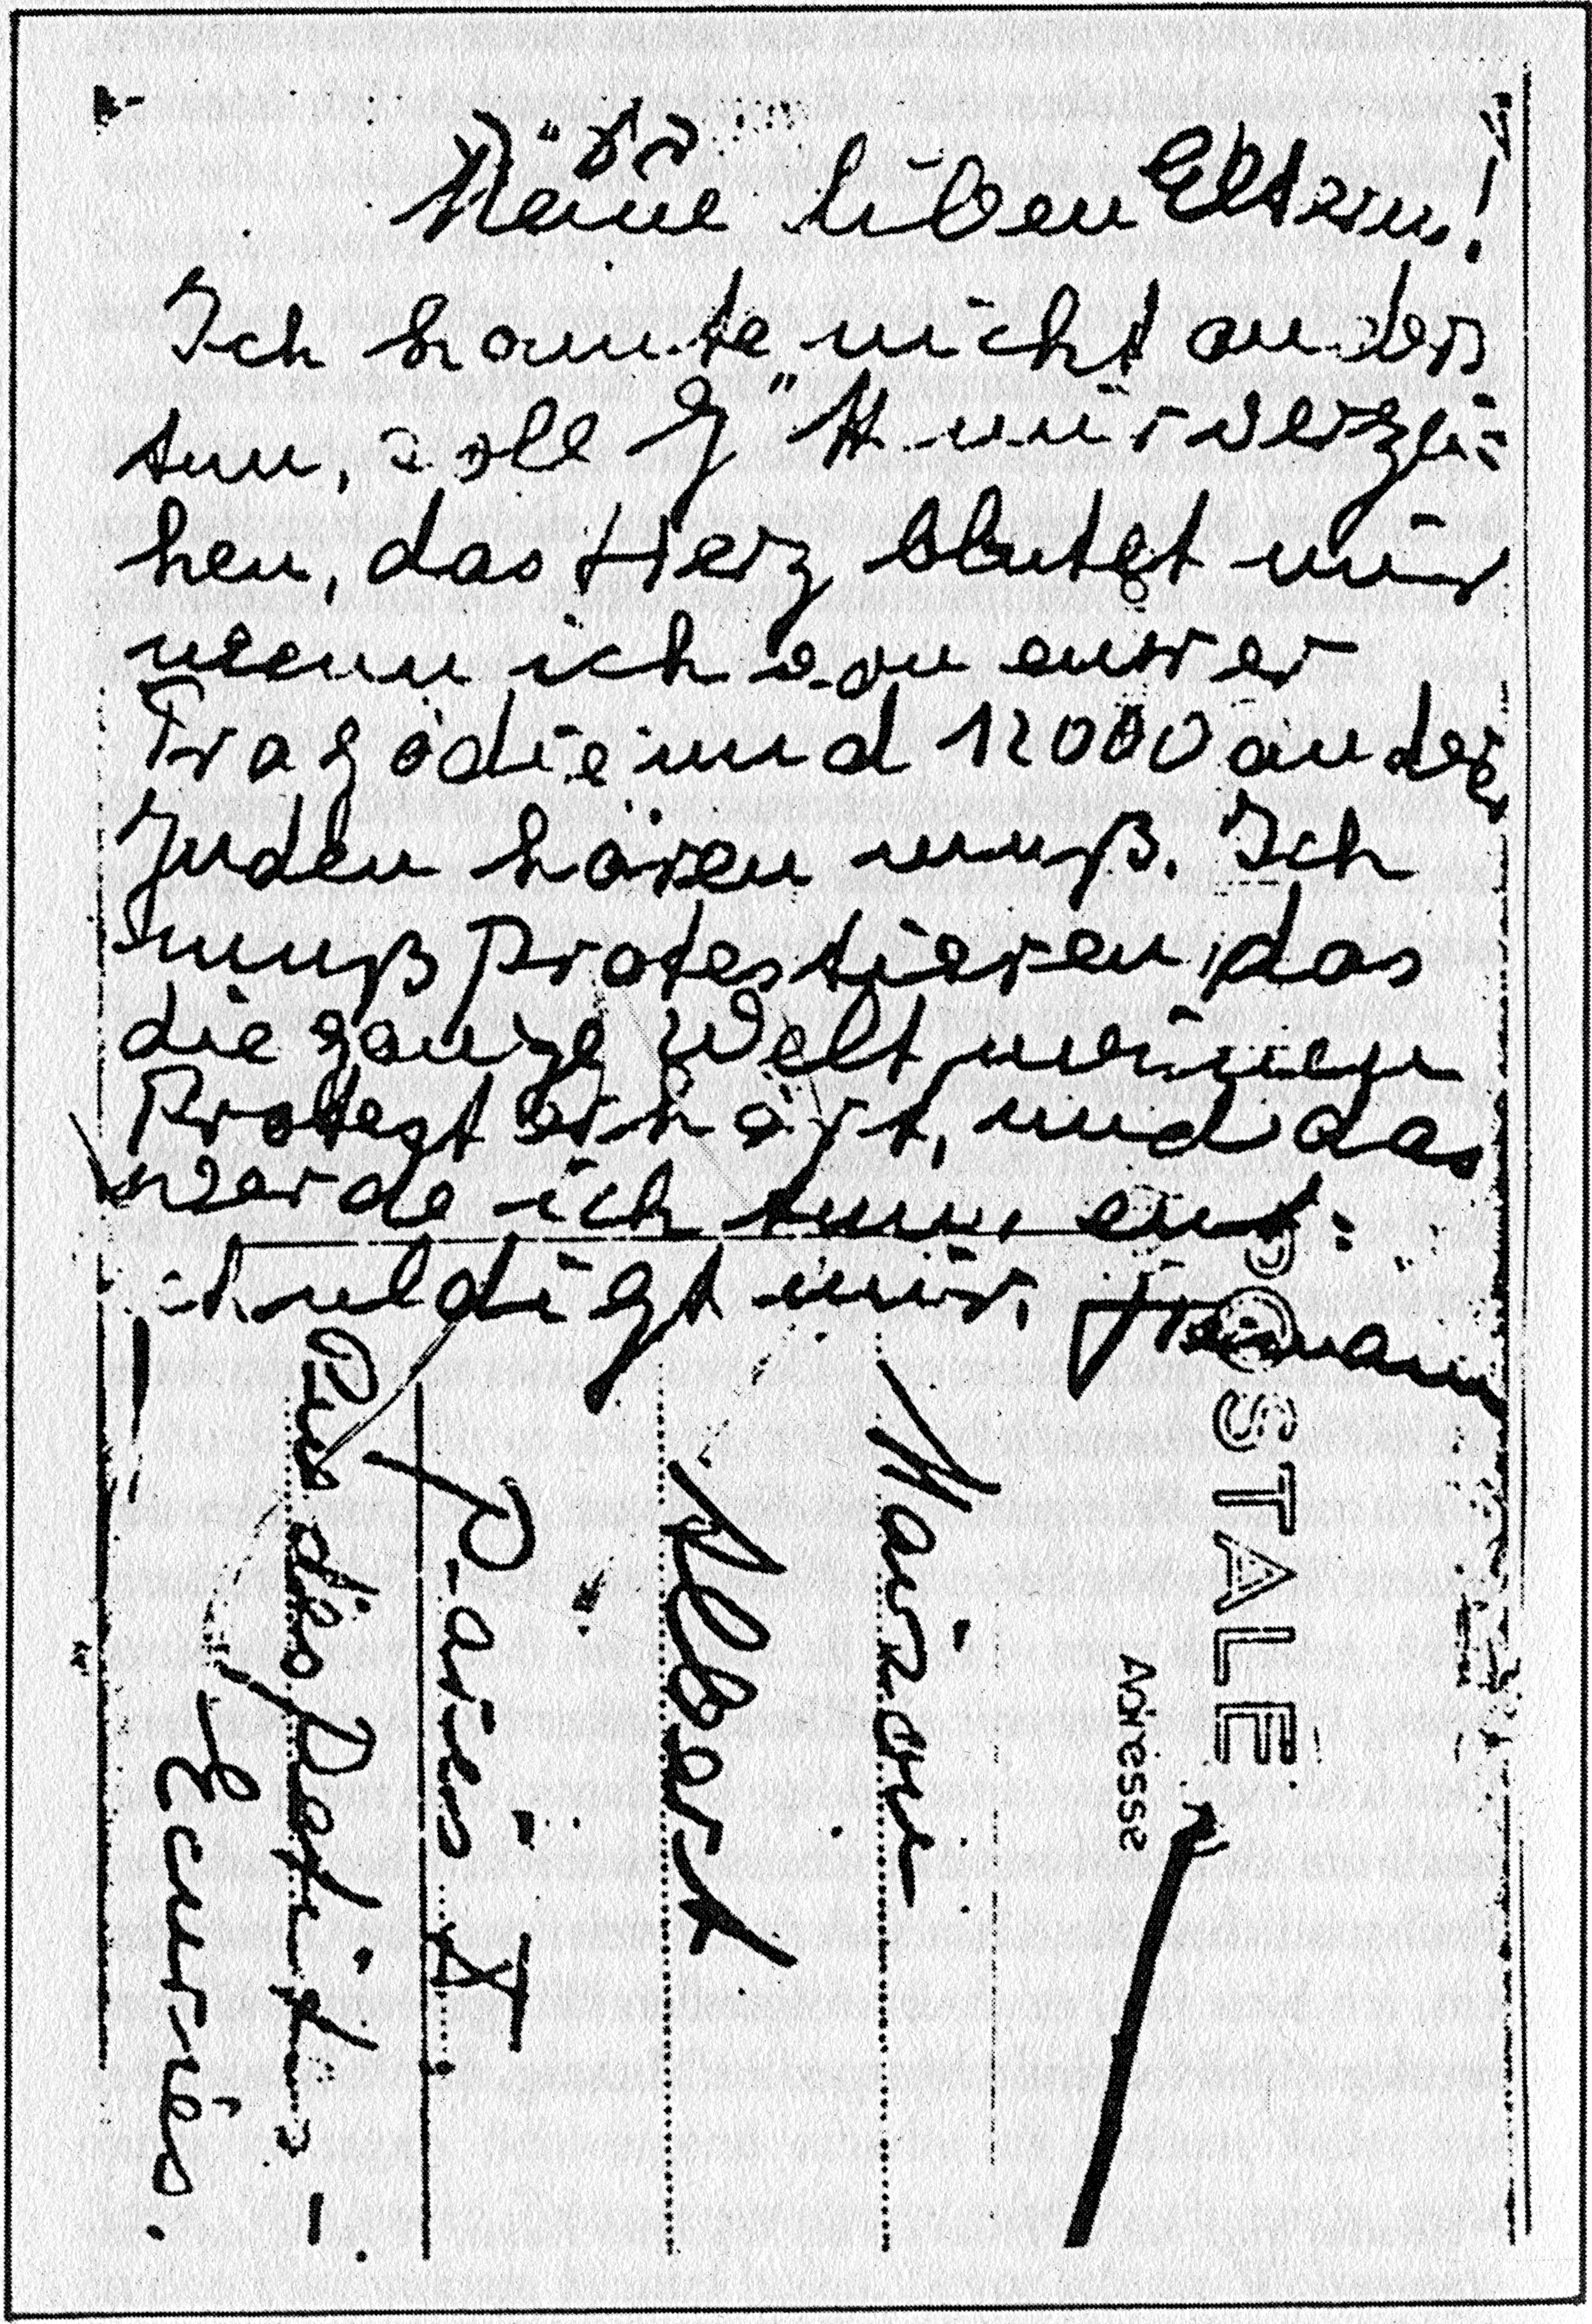 בע"ה
Meine liben Eltern!
Ich konnte nicht anders
tun, soll G"tt mir verzei=
hen, das Herz blutet mir
wenn ich von eurer
Tragödie und 12000 anderer
Juden hören muß. Ich
muß protestieren, das
die ganze Welt meinen
Protest erhört, und das
werde ich tun, ent=
schuldigt mir. Hermann
POSTALE
Adresse
Maison
Albert
Paris X
Rue des Petites-
Ecuries.